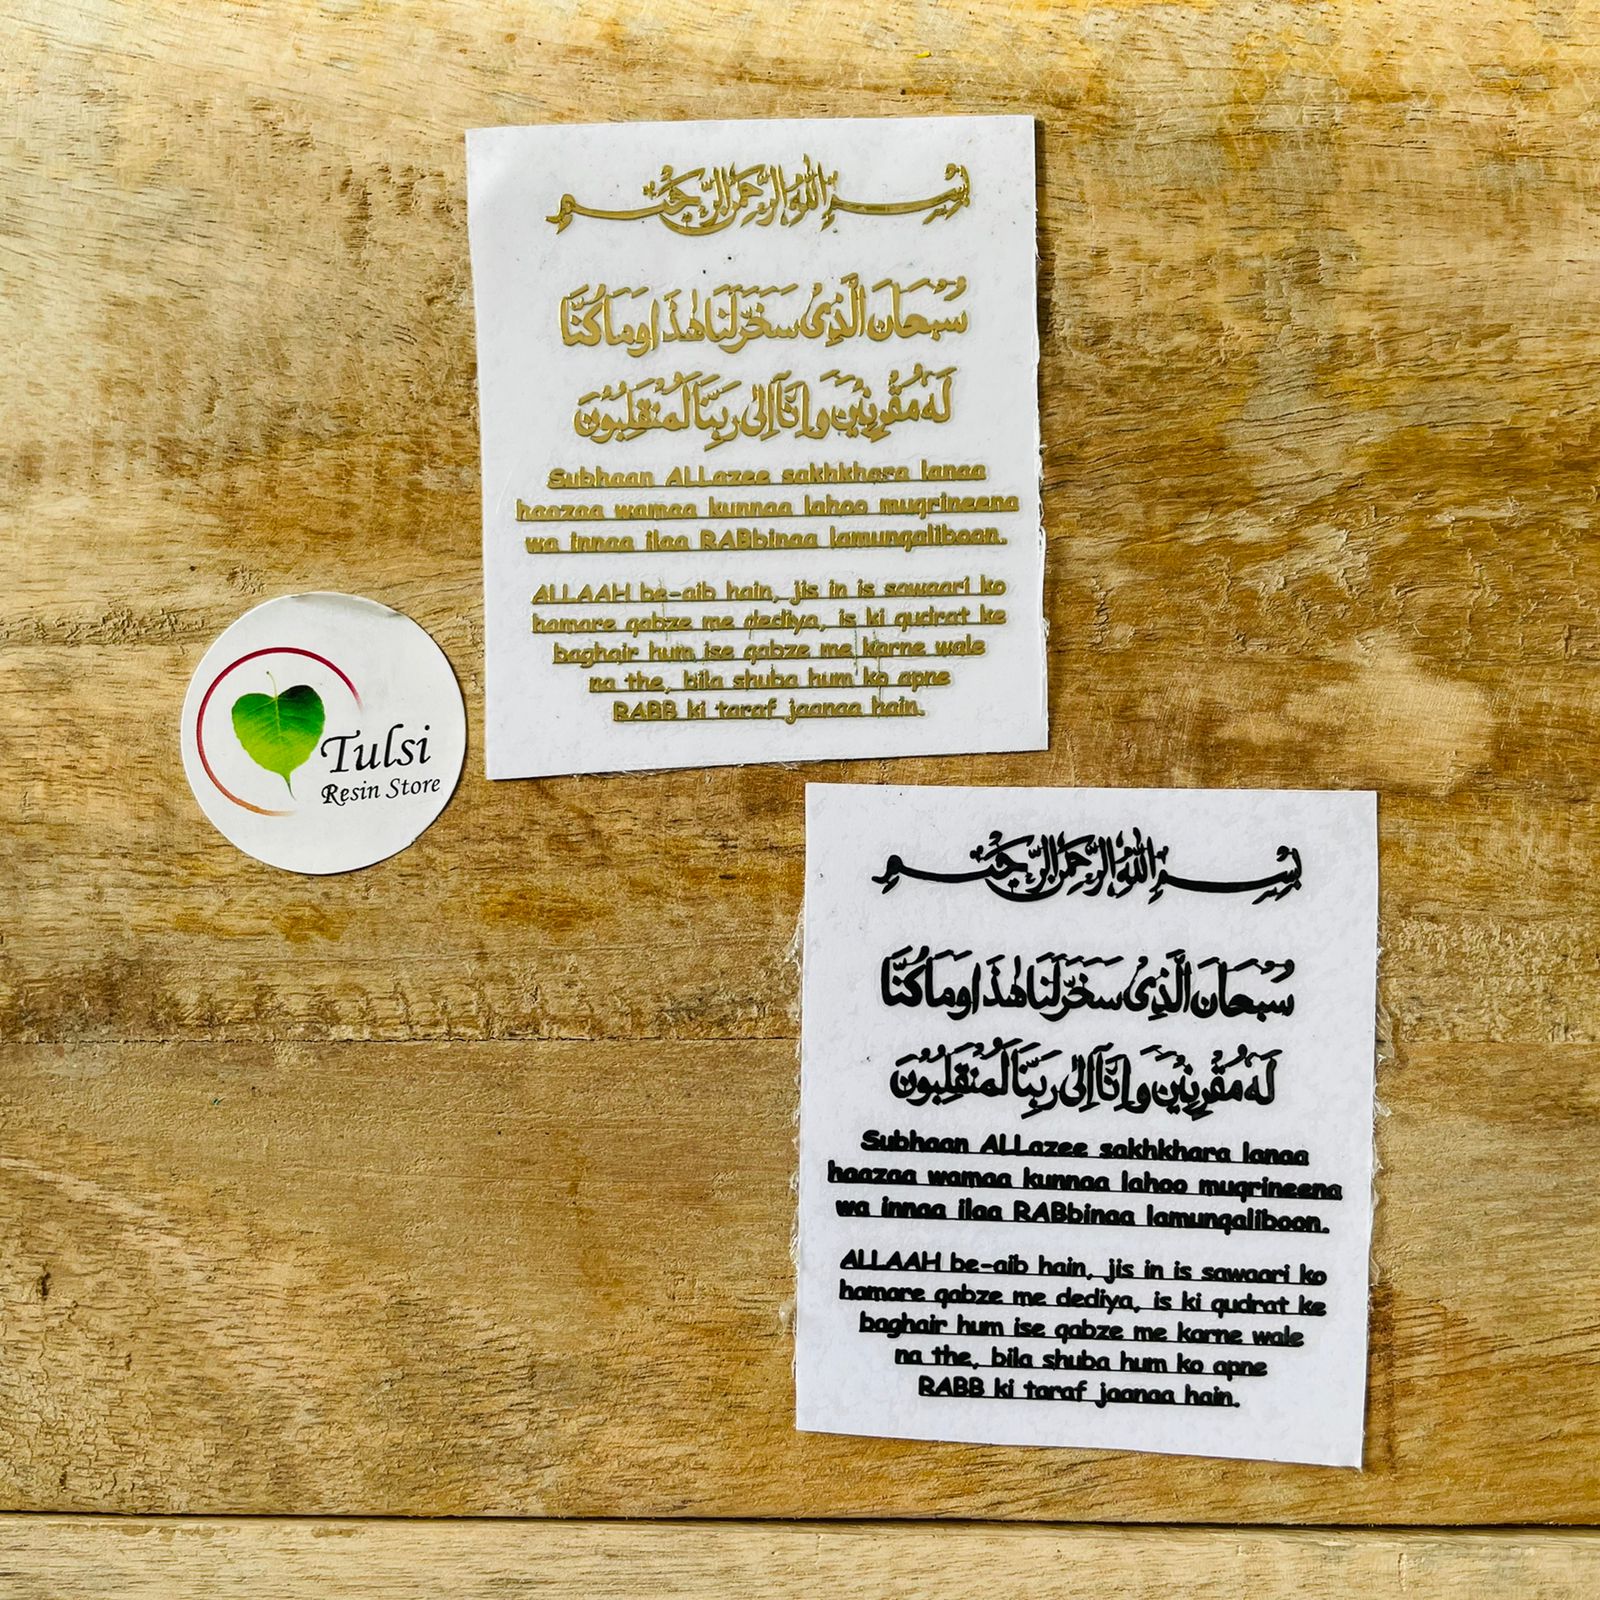 بِسْمِ اللهِ الرَّحْمٰنِ الرَّحِيْمِ
سُبْحَانَ الَّذِیْ سَخَّرَ لَنَا هٰذَا وَمَا كُنَّا
لَهٗ مُقْرِنِيْنَ وَاِنَّآ اِلٰى رَبِّنَا لَمُنْقَلِبُوْنَ
Subhaan ALLazee sakhkhara lanaa
haazaa wamaa kunnaa lahoo muqrineena
wa innaa ilaa RABbinaa lamunqaliboon.
ALLAAH be-aib hain, jis in is sawaari ko
hamare qabze me dediya, is ki qudrat ke
baghair hum ise qabze me karne wale
na the, bila shuba hum ko apne
RABB ki taraf jaanaa hain.
Tulsi
Resin Store
بِسْمِ اللهِ الرَّحْمٰنِ الرَّحِيْمِ
سُبْحَانَ الَّذِیْ سَخَّرَ لَنَا هٰذَا وَمَا كُنَّا
لَهٗ مُقْرِنِيْنَ وَاِنَّآ اِلٰى رَبِّنَا لَمُنْقَلِبُوْنَ
Subhaan ALLazee sakhkhara lanaa
haazaa wamaa kunnaa lahoo muqrineena
wa innaa ilaa RABbinaa lamunqaliboon.
ALLAAH be-aib hain, jis in is sawaari ko
hamare qabze me dediya, is ki qudrat ke
baghair hum ise qabze me karne wale
na the, bila shuba hum ko apne
RABB ki taraf jaanaa hain.